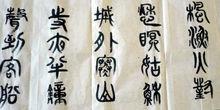 楓漁火對
愁眠姑蘇
城外寒山
寺夜半鐘
聲到客船